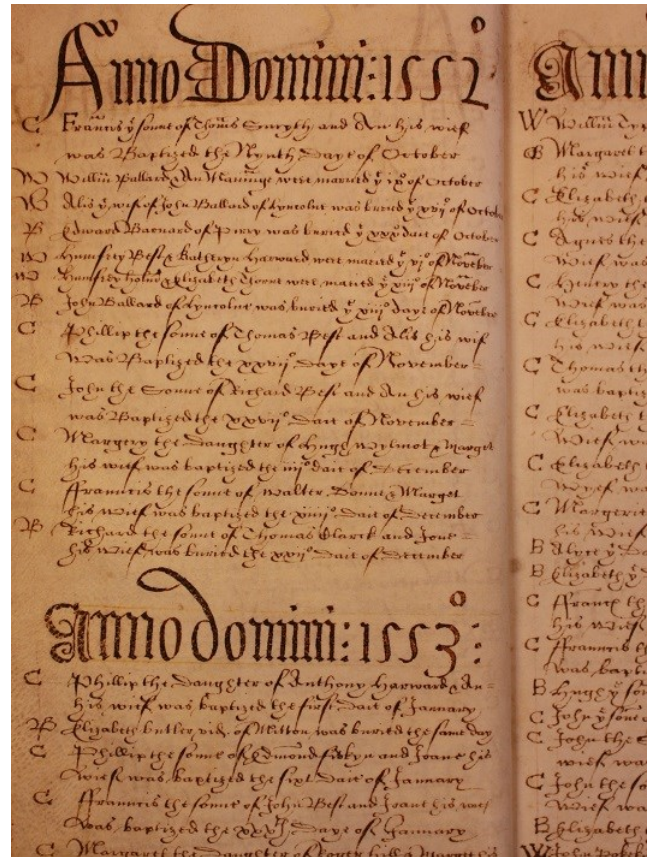 Anno Domini: 1552
C Francis ẙ sonne of Thom̃s Smyth and An his wief
was Baptized the Nynth Daye of October
W Willm̃ Ballard & An Manninge were maried ẙ ixº of October
B Alis ẙ wife of John Ballard of Lyncolne was buried ẙ xviº of October
B Edward Barnard of Pirry was buried ẙ xxx dait of October
W Humfrey Best & Katheryn Harward were maried ẙ viº of Novẽber
W Humfrey & Elizabeth were maried ẙ xiiiº of Novẽber
B John Ballard of Lyncolne was buried ẙ xiiiº daye of Novẽber
C Phillip the sonne of Thomas Best and Alis his wif
was Baptized the xxviiº daye of November
C John the Sonne of Richard Best and An his wief
was Baptized the xxviiº dait of November
C Margery the daughter of Hugh Wylmot & Marget
his wief was baptized the iiiº dait of December
C ffrauncis the sonne of Walter Donne & Marget
his wief was baptized the xiiiiº dait of december
B Richard the sonne of Thomas Clarck and Jone
his Wief was buried the xxiiº dait of December
Anno domini: 1553:
C Phillip the daughter of Anthony Harward & An
his wief was baptized the first dait of January
B Elizabeth butler vid. of Mitton was buried the same day
C Phillip the sonne of Edmond and Joane his
wief was baptized the sixt dait of January
C ffrauncis the sonne of John Best and Joane his wief
was baptized the daye of January
C Margaret the daughter of Roger hill & Margett his
Ann
W Willm̃
B Margaret
his wief
C Elizabeth
his wief
C Agnes the
wief was
C Henry the
wief was
C Elizabeth
his wief
C Thomas th
was baptiz
C Elizabeth
Wief wa
C Elizabeth
wyef wa
C Margerie
his wief
B Alyce ẙ
B Elizabeth ẙ
C ffraunc th
his wief
C ffrauncis
was bapti
B Hugh ẙ son
C John ẙ sone
C John the
wief wa
C John the so
wief wa
B Elizabeth
W John